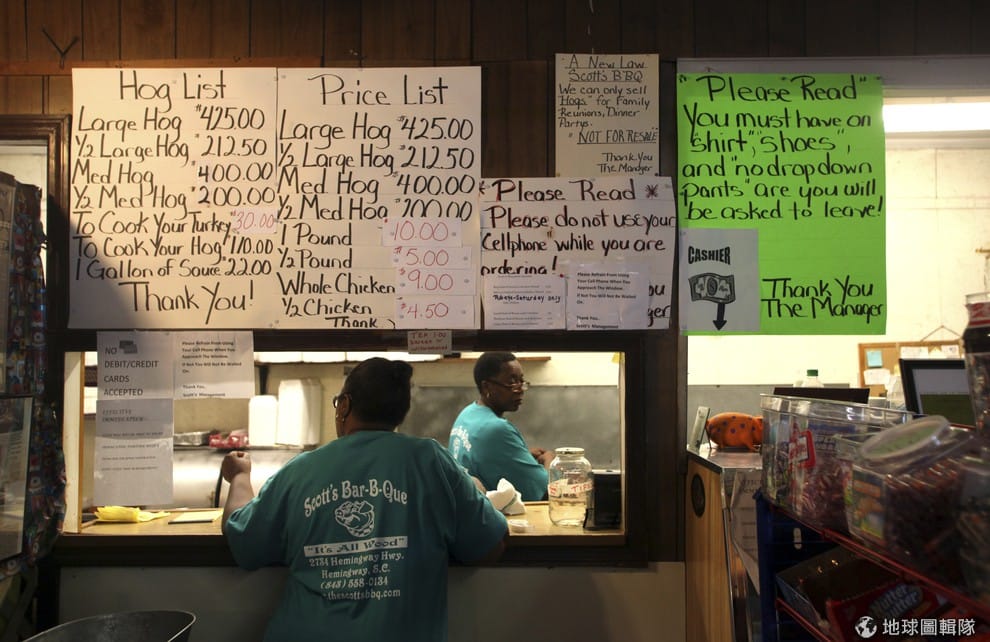 Hog List
Large Hog $425.00
1/2 Large Hog $212.50
Med Hog $400.00
1/2 Med Hog $200.00
To Cook Your Turkey $30.00
To Cook Your Hog $170.00
1 Gallon of Sauce $22.00
Thank You!
Price List
Large Hog $425.00
1/2 Large Hog $212.50
Med Hog $400.00
1/2 Med Hog $200.00
1 Pound 10.00
1/2 Pound $5.00
Whole Chicken $9.00
1/2 Chicken $4.50
Thank
A New Law
Scott's BBQ
We can only sell
"Hogs" for Family
Reunions, Dinner
Partys.
"NOT FOR RESALE"
Thank You
The Manager
"Please Read"
Please do not use your
"Cellphone" while you are
ordering!
Ribeye-Saturday only
Please Refrain From Using
Your Cell Phone When You
Approach The Window.
If Not You Will Not Be Waited
On.
"Please Read"
You must have on
"shirt", "shoes",
and "no drop down
pants" are you will
be asked to leave!
Thank You
The Manager
CASHIER
NO
DEBIT/CREDIT
CARDS
ACCEPTED
Please Refrain From Using
Your Cell Phone When You
Approach The Window.
If Not You Will Not Be Waited
On.
Thank You,
Scott's Management
Scott's Bar-B-Que
"It's All Wood"
2734 Hemingway Hwy.
Hemingway, S.C.
(843) 558-0134
thescottsbbq.com
Nutter Butter
地球圖輯隊